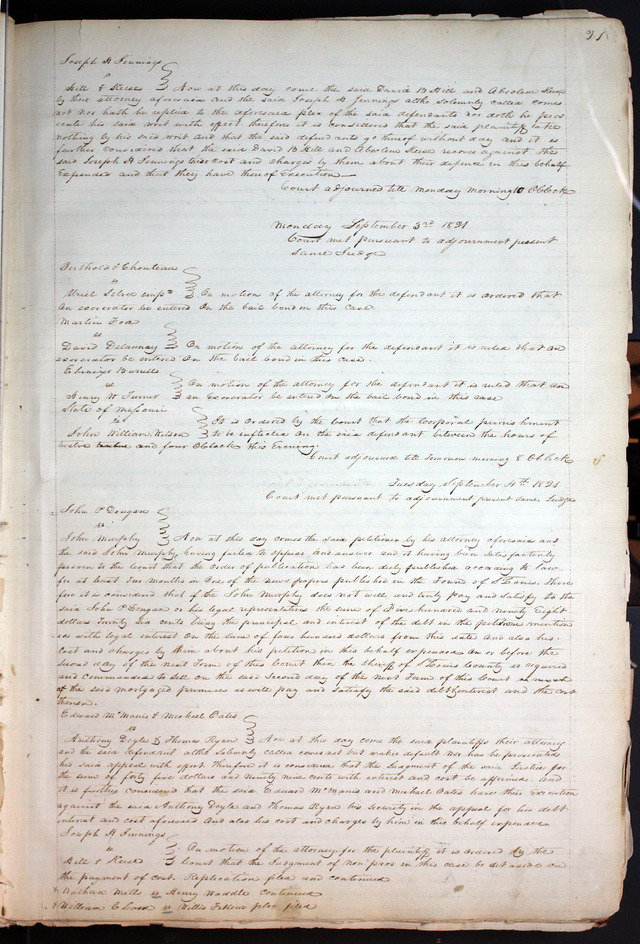 21
Joseph H Jennings
vs
Hill & Keise Now at this day come the said David B Hill and Absolem Keise
by their attorney aforesaid and the said Joseph H Jennings altho solemnly called comes
not nor hath he replied to the aforesaid plea of the said defendants nor doth he pros
ecute his said writ with effect therefore it is considered that the said plaintiff take
nothing by his said writ and that the said defendants go thereof without day and it is
further considered that the said David B Hill and Absolem Keise recover against the
said Joseph H Jennings their cost and charges by them about their defence in this behalf
Expended and that they have thereof Execution
Court adjourned till monday morning 10 OClock
Monday September 3rd 1821
Court met pursuant to adjournment present
Same Judge
Berthold & Chouteau
vs
On motion of the attorney for the defendant it is ordered that
an exonerator be entered On the bail bond in this case
Martin
vs
David Delaunay On motion of the attorney for the defendant it is ruled that an
exonerator be entered On the bail bond in this case.
Ebenezer
vs
Henry W Turner On motion of the attorney for the defendant it is ruled that an
an Exonerator be entered On the bail bond in this case
State of Missouri
vs
John William Wilson It is Ordered by the Court that the Corporal punishment
to be inflicted on the said defendant between the hours of
twelve and four OClock this Evening.
Court adjourned till Tomorrow morning 8 OClock
Tuesday September 4th 1821
Court met pursuant to adjournment present Same Judge
John P Dougan
vs
John Murphy Now at this day comes the said petitioner by his attorney aforesaid and
the said John Murphy having failed to appear and answer and it having been Satisfactorily
proven to the Court that the order of publication has been duly published according to law
for at least two months in One of the news papers published in the Town of St Louis there
fore it is considered that if the John Murphy does not well and truly Pay and Satisfy to the
said John P Dougan or his legal representatives the sum of Five hundred and ninety Eight
dollars Twenty Six cents being the principal and interest of the debt in the petition mention
ed with legal interest On the sum of four hundred dollars from this date and also his
Cost and charges by them about his petition in this behalf expended on or before the
Second day of the next Term of this Court then the sheriff of St Louis County is required
and commanded to sell on the said Second day of the next Term of this Court so much
of the said mortgaged premises as will pay and satisfy the said debt interest and the cost
thereon.
Edward McManis & Michael Oates
vs
Anthony Doyle & Thomas Ryan Now at this day come the said plaintiffs their attorney
and the said defendant altho Solemnly called comes not but makes default nor has he prosecuted
his said appeal with effect Therefore it is considered that the Judgment of the said Justice for
the sum of forty five dollars and ninety nine cents with interest and cost be affirmed. And
it is further considered that the said Edward McManis and Michael Oates have their Execution
against the said Anthony Doyle and Thomas Ryan his security in the appeal for his debt
interest and cost aforesaid And also his cost and charges by him in this behalf expended
Joseph H Jennings
vs
Hill & Keise On motion of the attorney for the plaintiff it is ordered by the
Court that the Judgment of Non pros in this case be set aside on
the payment of cost. Replication filed and continued
Nathan Mills vs Henry Waddle continued
William C vs Willis Fellows plea filed